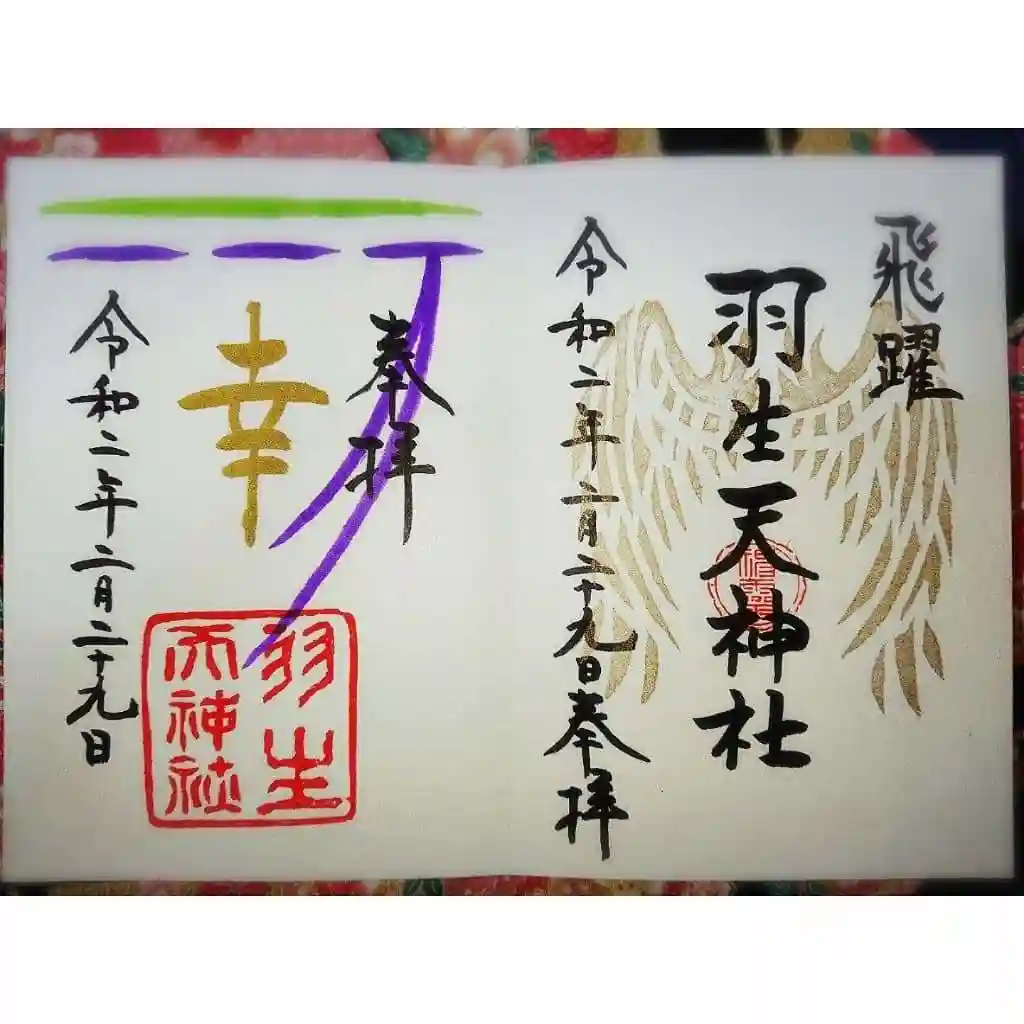 飛躍
羽生天神社
令和二年二月二十九日奉拝
奉拝
幸
羽生
天神社
令和二年二月二十九日